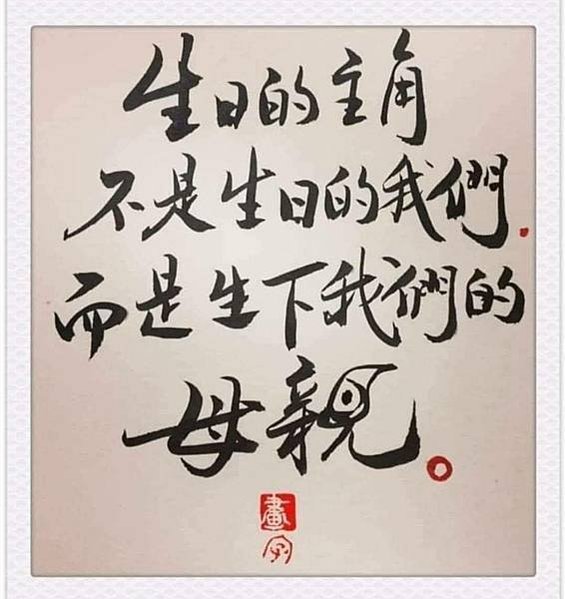 生日的主角
不是生日的我們.
而是生下我們的
母親。
畫
字